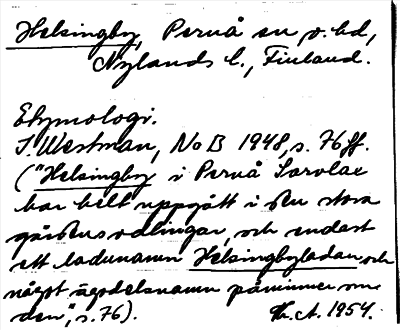 Helsingby, Pernå sn o. hd,
Nylands l., Finland.
Etymologi.
I. Westman, NoB 1948, s. 76 ff.
("Helsingby i Pernå Sarvlax
har helt uppgått i den stora
gårdens odlingar, och endast
ett ladunamn Helsingbyladan och
något ägodelsnamn påminner om
den", s. 76). Hr. A. 1954.